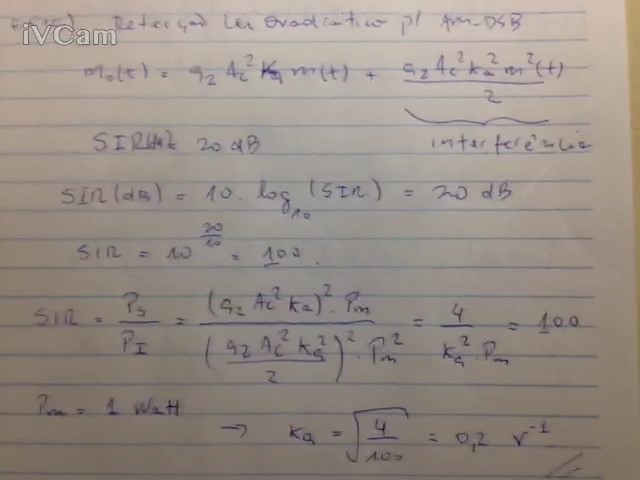 iVCam
Detecção Lei Quadrática p/ AM-DSB
m₀(t) = a₂ Ac² Ka m(t) + a₂ Ac² Ka² m²(t) / 2
SIR 20 dB interferência
SIR(dB) = 10 . log₁₀ (SIR) = 20 dB
SIR = 10^(20/10) = 100.
SIR = Ps / PI = (a₂ Ac² Ka)² . Pm / (a₂ Ac² Ka² / 2)² . Pm² = 4 / Ka² . Pm = 100
Pm = 1 Watt
→ Ka = √(4/100) = 0,2 V⁻¹